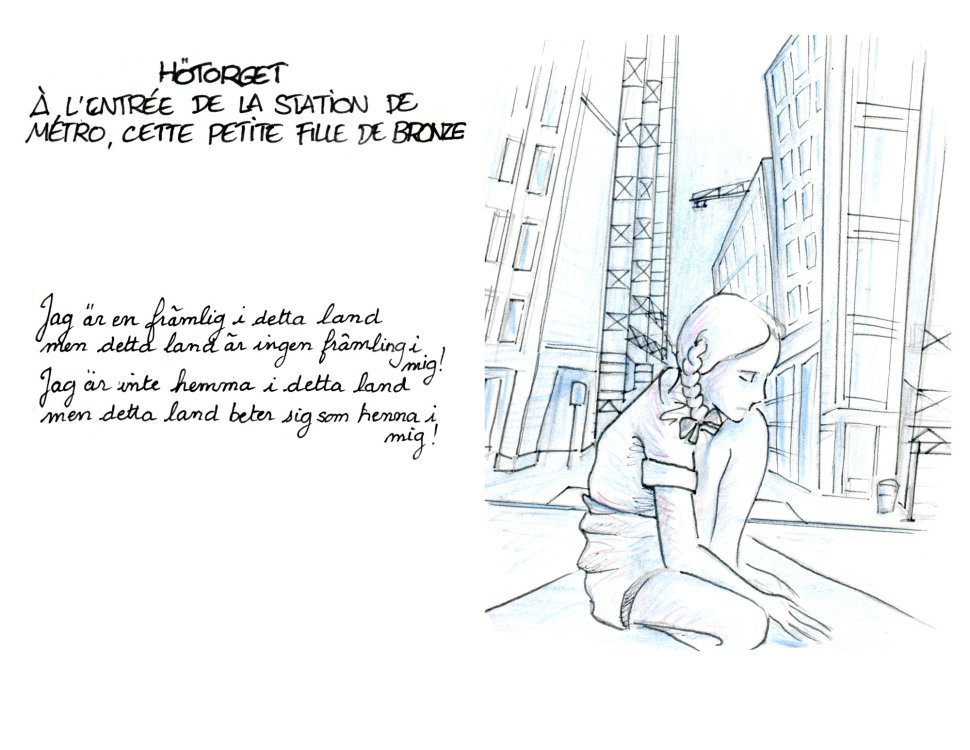 HÖTORGET
À L'ENTRÉE DE LA STATION DE
MÉTRO, CETTE PETITE FILLE DE BRONZE
Jag är en främlig i detta land
men detta land är ingen främling i
mig!
Jag är inte hemma i detta land
men detta land beter sig som hemma i
mig!